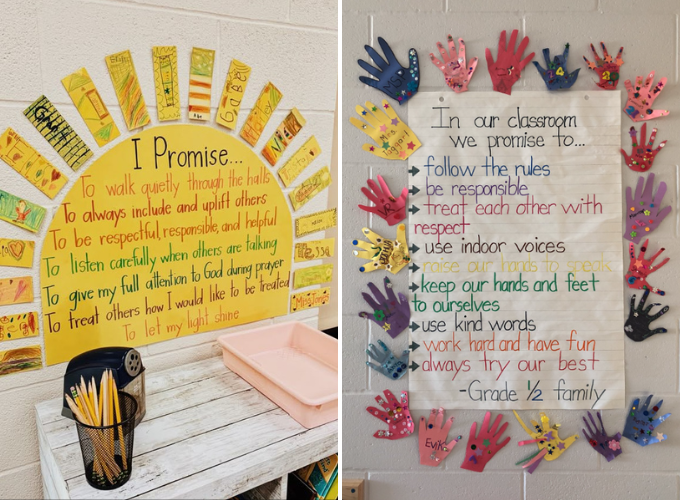 I Promise...
To walk quietly through the halls
To always include and uplift others
To be respectful, responsible, and helpful
To listen carefully when others are talking
To give my full attention to God during prayer
To treat others how I would like to be treated
To let my light shine
Gabe
In our classroom
we promise to...
follow the rules
be responsible
treat each other with
respect
use indoor voices
raise our hands to speak
keep our hands and feet
to ourselves
use kind words
work hard and have fun
always try our best
-Grade 1/2 family